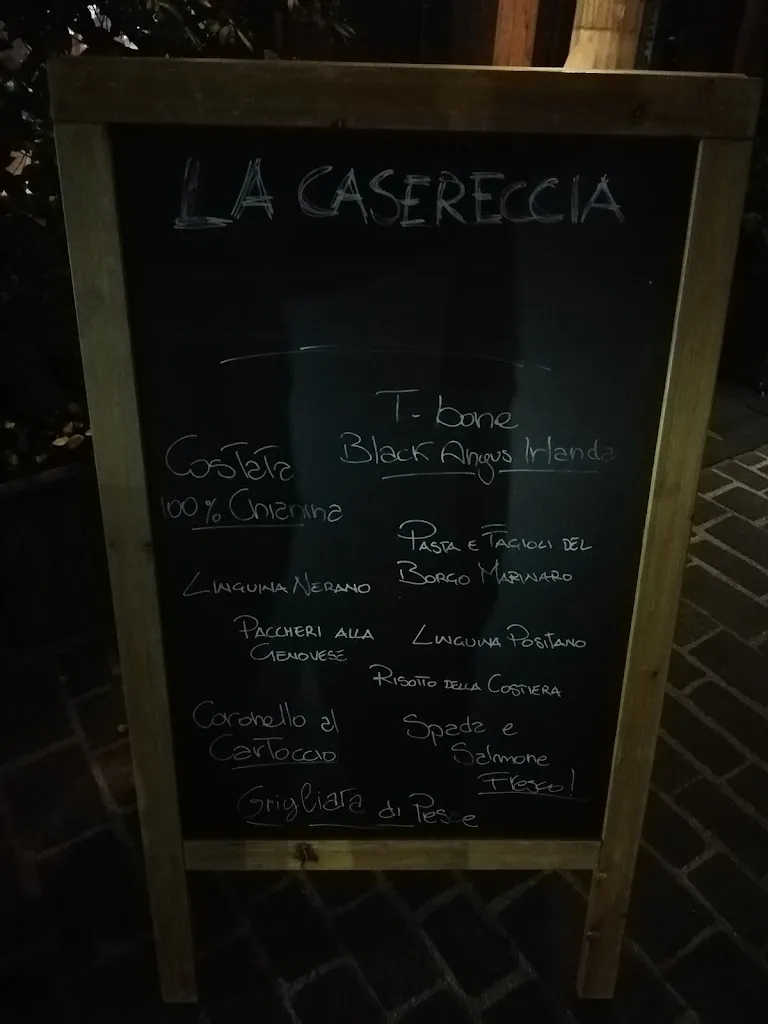 LA CASERECCIA
T-bone
Black Angus Irlanda
Costata
100% Chianina
Pasta e Fagioli del
Borgo Marinaro
Linguina Nerano
Paccheri alla
Genovese
Linguina Positano
Risotto della Costiera
Coronello al
Cartoccio
Spada e
Salmone
Fresco!
Grigliata di Pesce